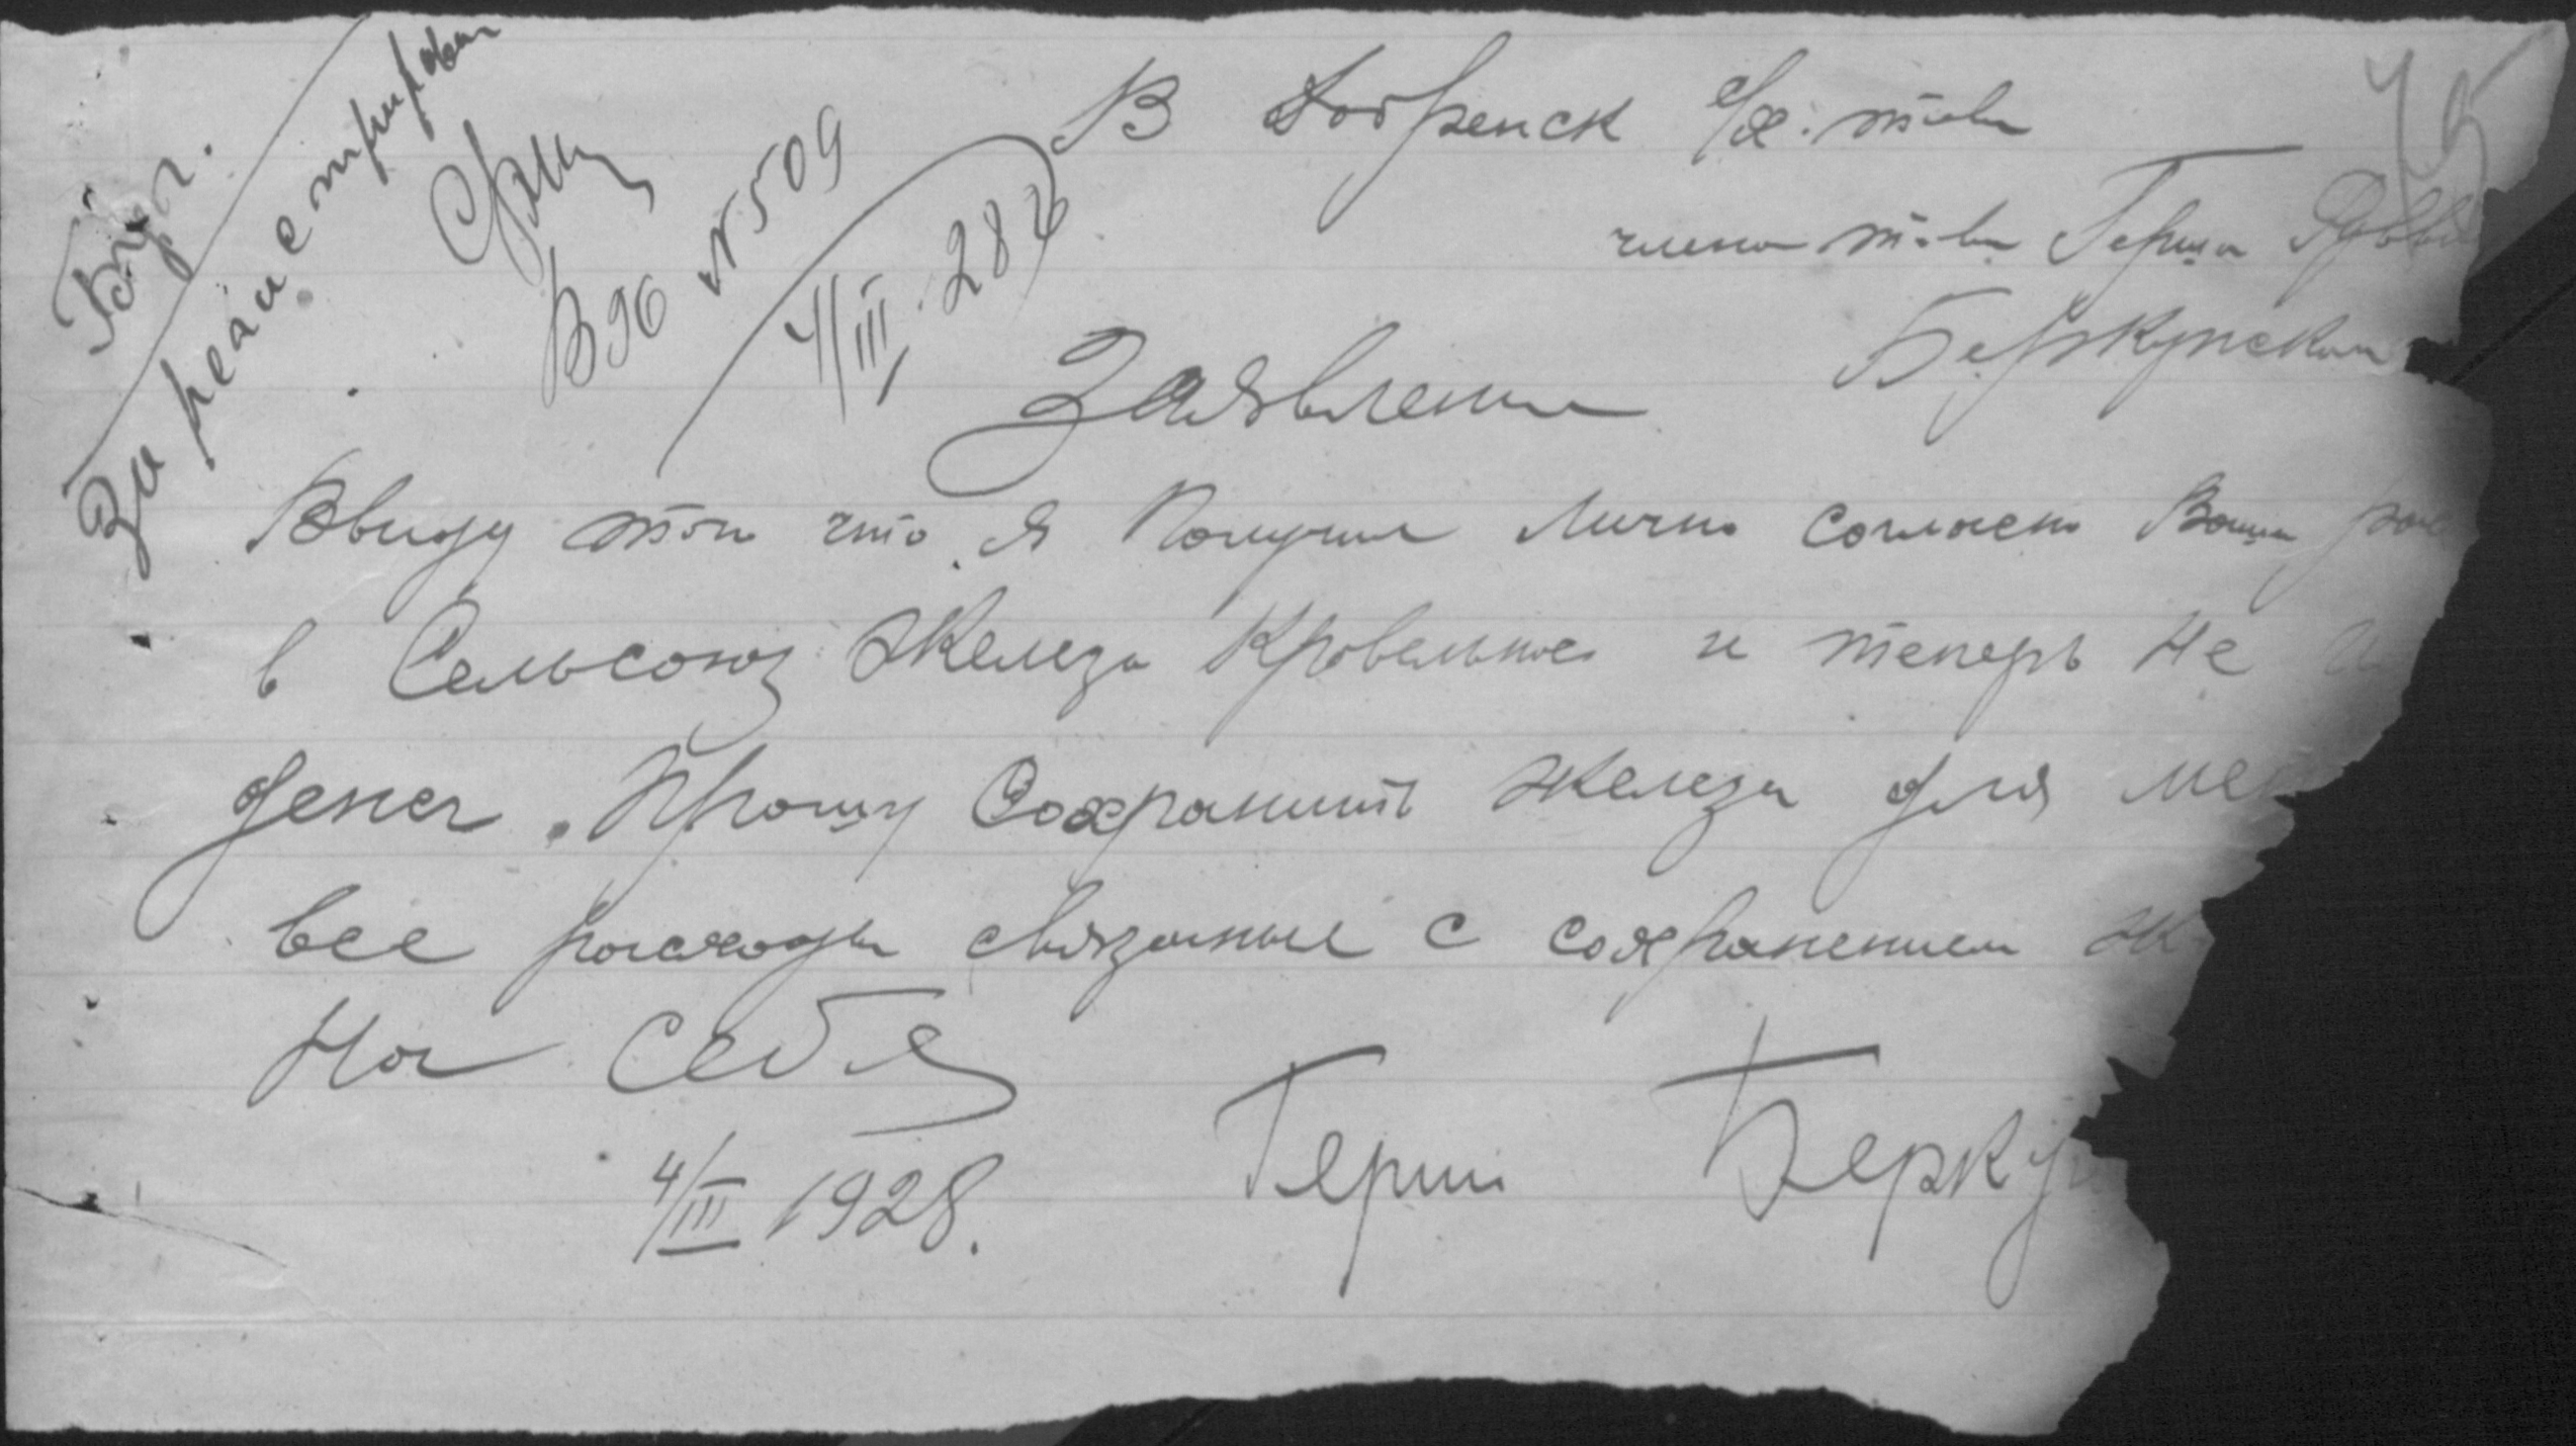 Бух.
Зарегистрировать
Вх №509
4/III 28 г
В Добренск с/х. т-во
члена т-ва Герша
Беркунского
Заявление
Ввиду того что я Получил Лично согласно Ваши
в Сельсоюз Железо Кровельное и теперь не
денег. Прошу Сохранить железо для мен
все расходы связаные с сохранением ж
на себя
4/III 1928.
Герш Берку